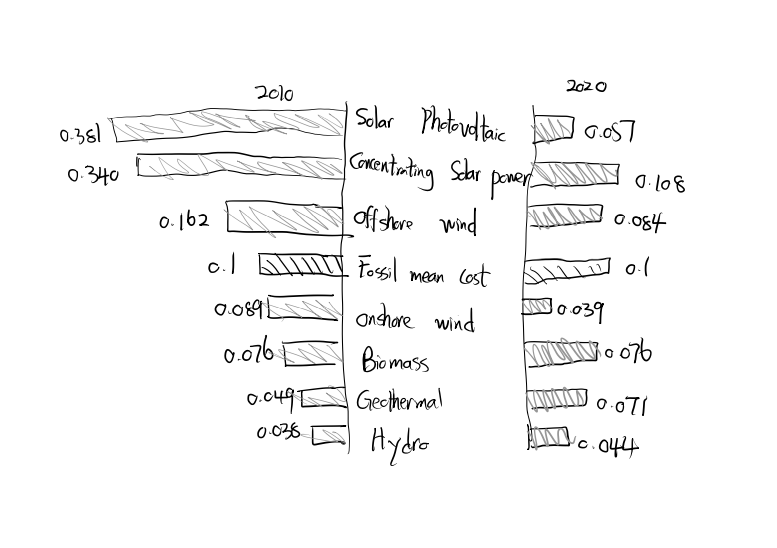 2010 2020
0.381 Solar Photovoltaic 0.057
0.340 Concentrating Solar power 0.108
0.162 Offshore wind 0.084
0.1 Fossil mean cost 0.1
0.089 Onshore wind 0.039
0.076 Biomass 0.076
0.049 Geothermal 0.071
0.038 Hydro 0.044